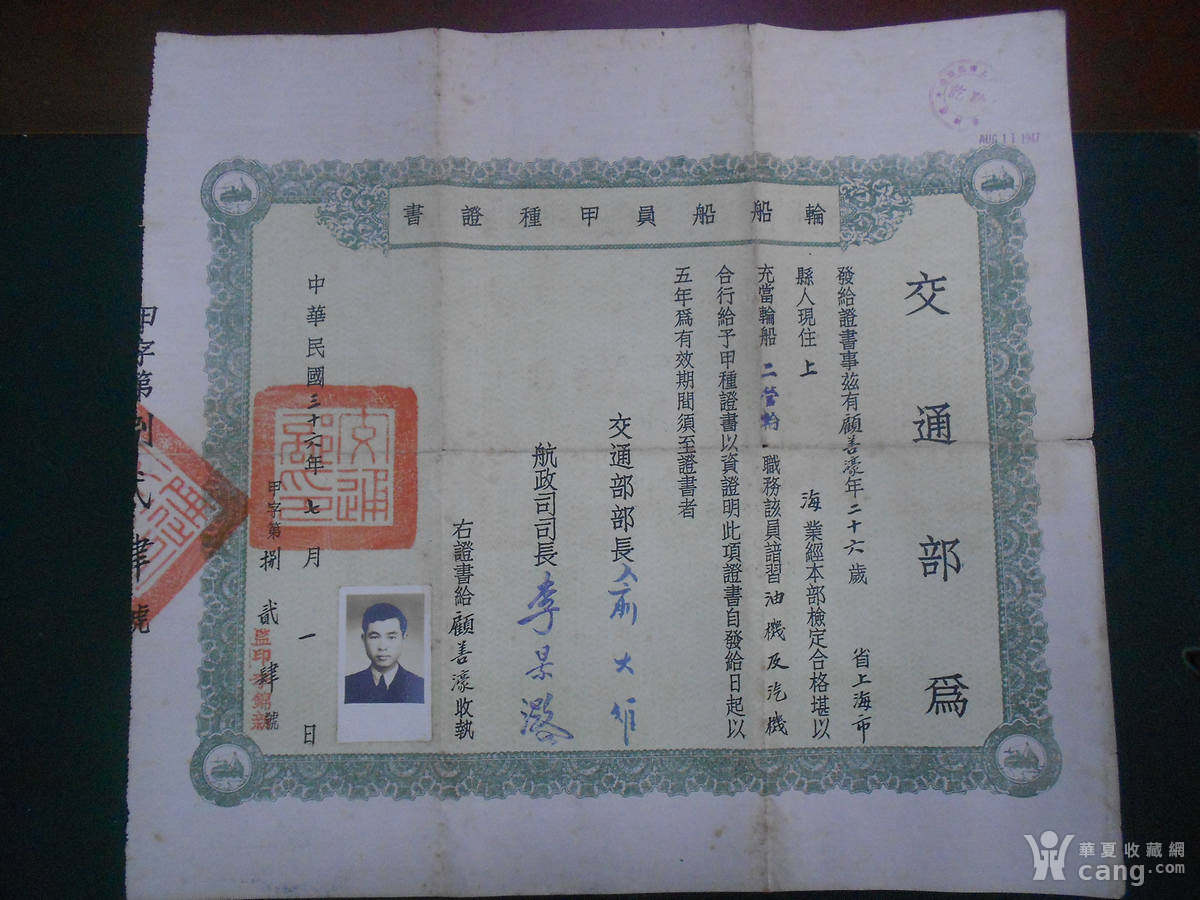 AUG 11 1947
輪船船員甲種證書
交通部為
發給證書事茲有顧善濠年二十六歲 省上海市
縣人現住上 海 業經本部檢定合格堪以
充當輪船二管輪職務該員諳習油機及汽機
合行給予甲種證書以資證明此項證書自發給日起以
五年爲有效期間須至證書者
交通部部長俞大維
航政司司長李景潞
右證書給顧善濠收執
中華民國三十六年七月一日
甲字第捌貳肆號
監印李錦新
交通部印
甲字第捌貳肆號
華夏收藏網
cang.com